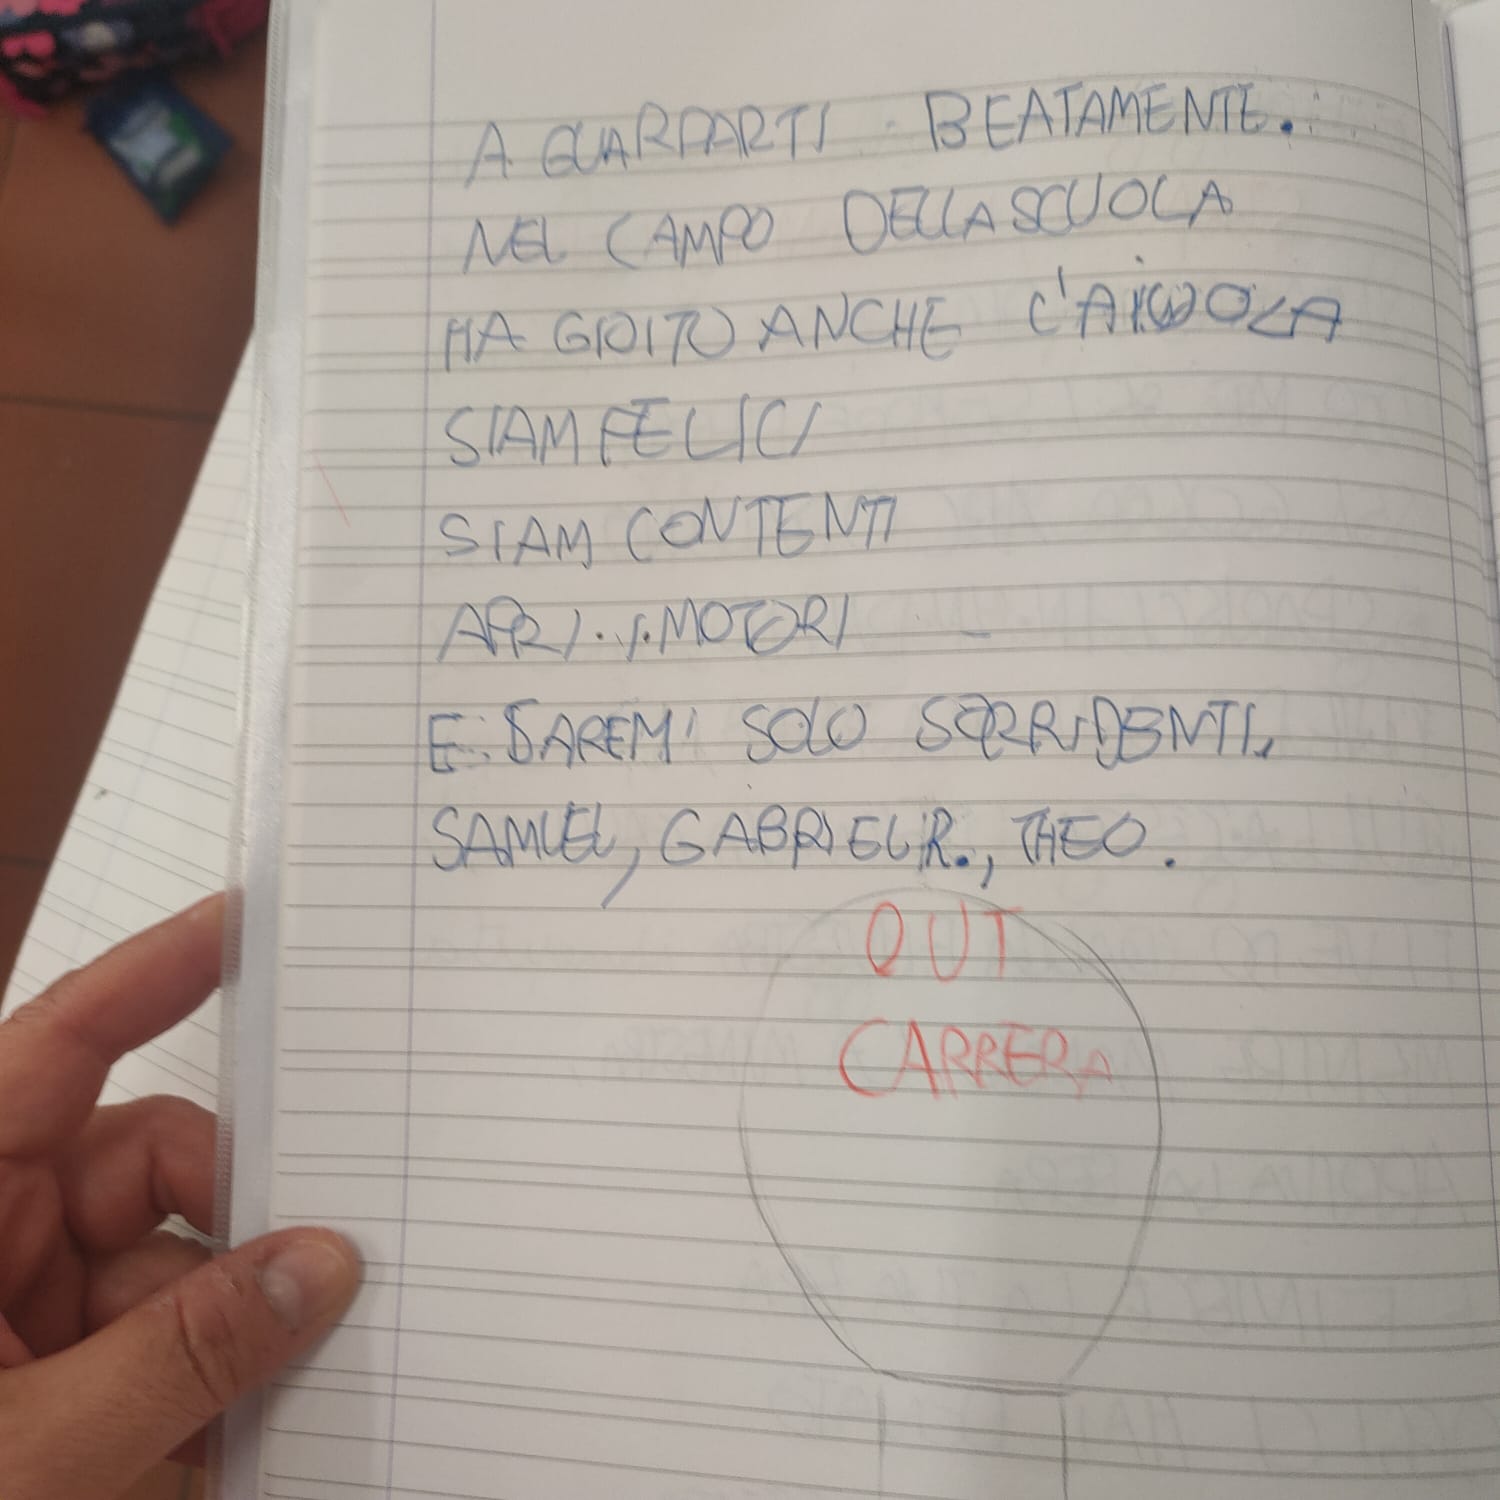 A GUARDARTI BEATAMENTE.
NEL CAMPO DELLA SCUOLA
HA GIOITO ANCHE L'AIUOLA
SIAM FELICI
SIAM CONTENTI
APRI. I. MOTORI
E. SAREM SOLO SORRIDENTI.
SAMUEL, GABRIEL R., THEO.
OUT
CARRERA